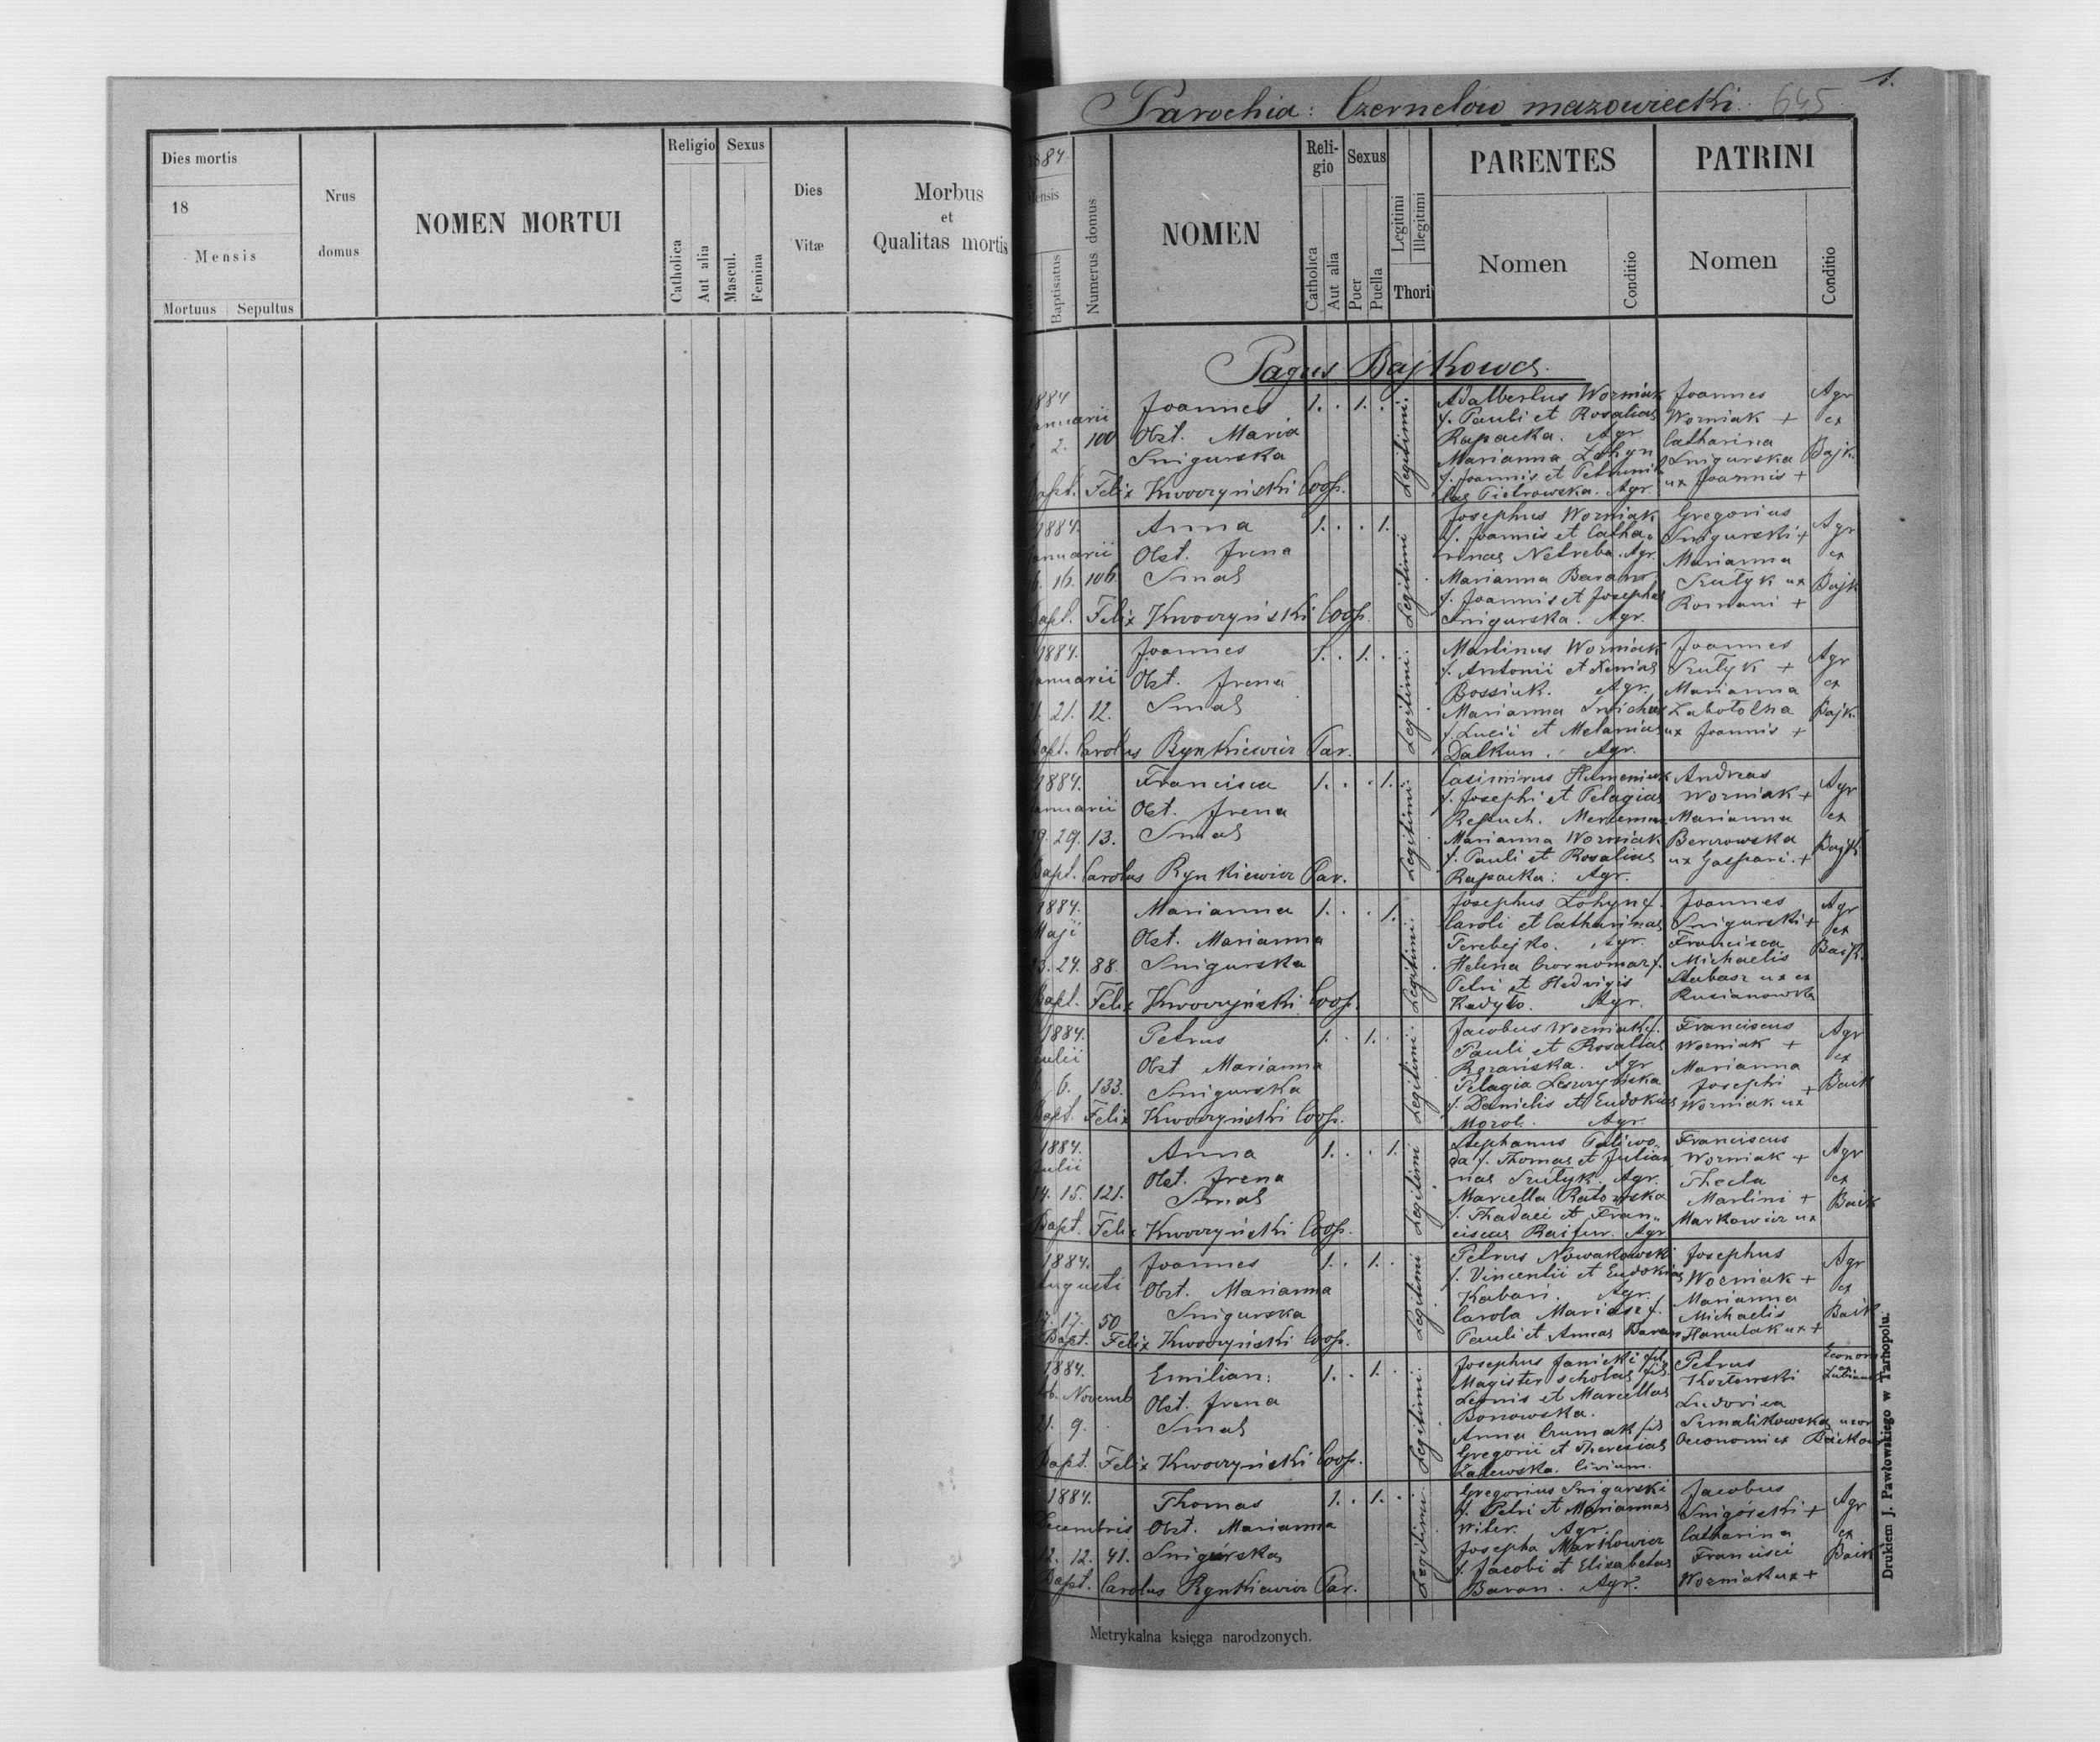 Dies mortis
18
Mensis
Mortuus Sepultus
Nrus
domus
NOMEN MORTUI
Religio
Catholica
Aut alia
Sexus
Mascul.
Femina
Dies
Vitæ
Morbus
et
Qualitas mortis
1.
Parochia: Czernelów mazowiecki. 645
1884
Mensis
Baptisatus
Numerus domus
NOMEN
Reli-
gio
Catholica
Aut alia
Sexus
Puer
Puella
Legitimi
Illegitimi
Thori
PARENTES
Nomen
Conditio
PATRINI
Nomen
Conditio
Pagus Bajkowce.
1884
Januarii
2. 100
Joannes
Obst. Maria
Snigurska
Bapt. Felix Kwoczyński Coop.
1. . 1. .
Legitimi.
Adalbertus Worniak
f. Pauli et Rosaliae
Rapacka. Agr.
Marianna Lohyn
f. Joannis et Petronil
lae Piotrowska. Agr.
Joannes
Worniak +
Catharina
Snigurska
ux Joannis +
Agr
ex
Bajk.
1884.
Januarii
16. 16. 106.
Anna
Obst. Irena
Smal
Bapt. Felix Kwoczyński Coop.
1. . . 1.
Legitimi
Josephus Worniak
f. Joannis et Catha-
rinae Netreba. Agr.
Marianna Baran
f. Joannis et Josephae
Snigurska. Agr.
Gregorius
Snigurski +
Marianna
Szutyk ux
Romani +
Agr
ex
Bajk
1884.
Januarii
21. 21. 12.
Joannes
Obst. Irena
Smal
Bapt. Carolus Rynkiewicz Par.
1. . 1. .
Legitimi.
Martinus Worniak
f. Antonii et Xeniae
Bossiuk. Agr.
Marianna
f. Lucii et Melaniae
Dalkun. Agr.
Joannes
Szutyk +
Marianna
Zabolotna
ux Joannis +
Agr
ex
Bajk.
1884.
Januarii
29. 29. 13.
Francisca
Obst. Irena
Smal
Bapt. Carolus Rynkiewicz Par.
1. . . 1.
Legitimi.
Casimirus Humeniuk
f. Josephi et Pelagiae
Repuch.
Marianna Worniak
f. Pauli et Rosaliae
Rapacka: Agr.
Andreas
Worniak +
Marianna
Berezowska
ux Gaspari. +
Agr
ex
Bajk
1884.
Maji
23. 24. 88.
Marianna
Obst. Marianna
Snigurska
Bapt. Felix Kwoczyński Coop.
1. . . 1.
Legitimi.
Josephus Lohyn f.
Caroli et Catharinae
Terebejko. Agr.
Helena Czornomaz f.
Petri et Hedvigis
Kadyło. Agr.
Joannes
Snigurski +
Francisca
Michaelis
ux ex
Rusianowka
Agr
ex
Bajk.
1884.
Julii
6. 133.
Petrus
Obst Marianna
Snigurska
Bapt. Felix Kwoczyński Coop.
1. . 1. .
Legitimi.
Jacobus Worniak f.
Pauli et Rosaliae
Agr
Pelagia Leszczyńska
f. Danielis et Eudokiae
Moroz. Agr.
Franciscus
Worniak +
Marianna
Josephi
Worniak ux +
Agr
ex
Baik
1884.
Julii
14. 15. 121.
Anna
Obst. Irena
Smal
Bapt. Felix Kwoczyński Coop.
1. . . 1.
Legitimi
Stephanus Paliwo-
da f. Thomae et Julian
nae Szutyk. Agr.
Marcella Ratowska
f. Thadaei et Fran-
ciscae Agr
Franciscus
Worniak +
Thecla
Martini +
Markowicz ux
Agr
ex
Baik
1884.
Augusti
17. 17. 50
Joannes
Obst. Marianna
Snigurska
Bapt. Felix Kwoczyński Coop.
1. . 1. .
Legitimi
Petrus Nowakowski
f. Vincentii et Eudokiae
Kaban. Agr.
Carola Mariasz f.
Pauli et Annae Baran
Josephus
Woźniak +
Marianna
Michaelis
Hanulak ux +
Agr
ex
Baik
1884.
Novemb
21. 9.
Emilian:
Obst. Irena
Smal
Bapt. Felix Kwoczyński Coop.
1. . 1. .
Legitimi.
Josephus Janicki
Magister scholae fil.
Leonis et Marcellae
Bonowska.
Anna Czumak fil
Gregorii et Theresiae
Zalewska. Civium.
Petrus
Kozłowski
Ludovica
Szmalikowska uxor
Oeconomi ex Baikow
Econom
ex
1884.
Decembris
12. 12. 41.
Thomas
Obst. Marianna
Snigurska
Bapt. Carolus Rynkiewicz Par.
1. . 1. .
Legitimi.
Gregorius Snigurski
f. Petri et Mariannae
Witer. Agr.
Josepha Markowicz
f. Jacobi et Elisabetae
Baran. Agr.
Jacobus
Snigórski +
Catharina
Francisci
Worniak ux +
Agr
ex
Baik
Metrykalna księga narodzonych.
Drukiem J. Pawłowskiego w Tarnopolu.